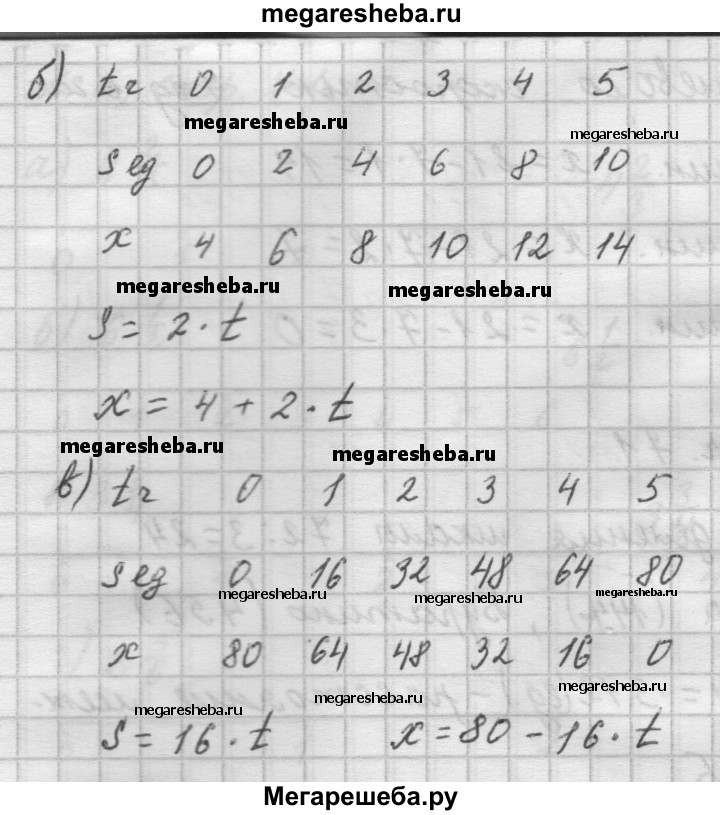 megaresheba.ru
б) t г 0 1 2 3 4 5
megaresheba.ru megaresheba.ru
s ед 0 2 4 6 8 10
x 4 6 8 10 12 14
megaresheba.ru megaresheba.ru
s = 2 · t
x = 4 + 2 · t
megaresheba.ru megaresheba.ru
в) t г 0 1 2 3 4 5
s ед 0 16 32 48 64 80
megaresheba.ru megaresheba.ru megaresheba.ru
x 80 64 48 32 16 0
megaresheba.ru megaresheba.ru megaresheba.ru
s = 16 · t x = 80 - 16 · t
Мегарешеба.ру